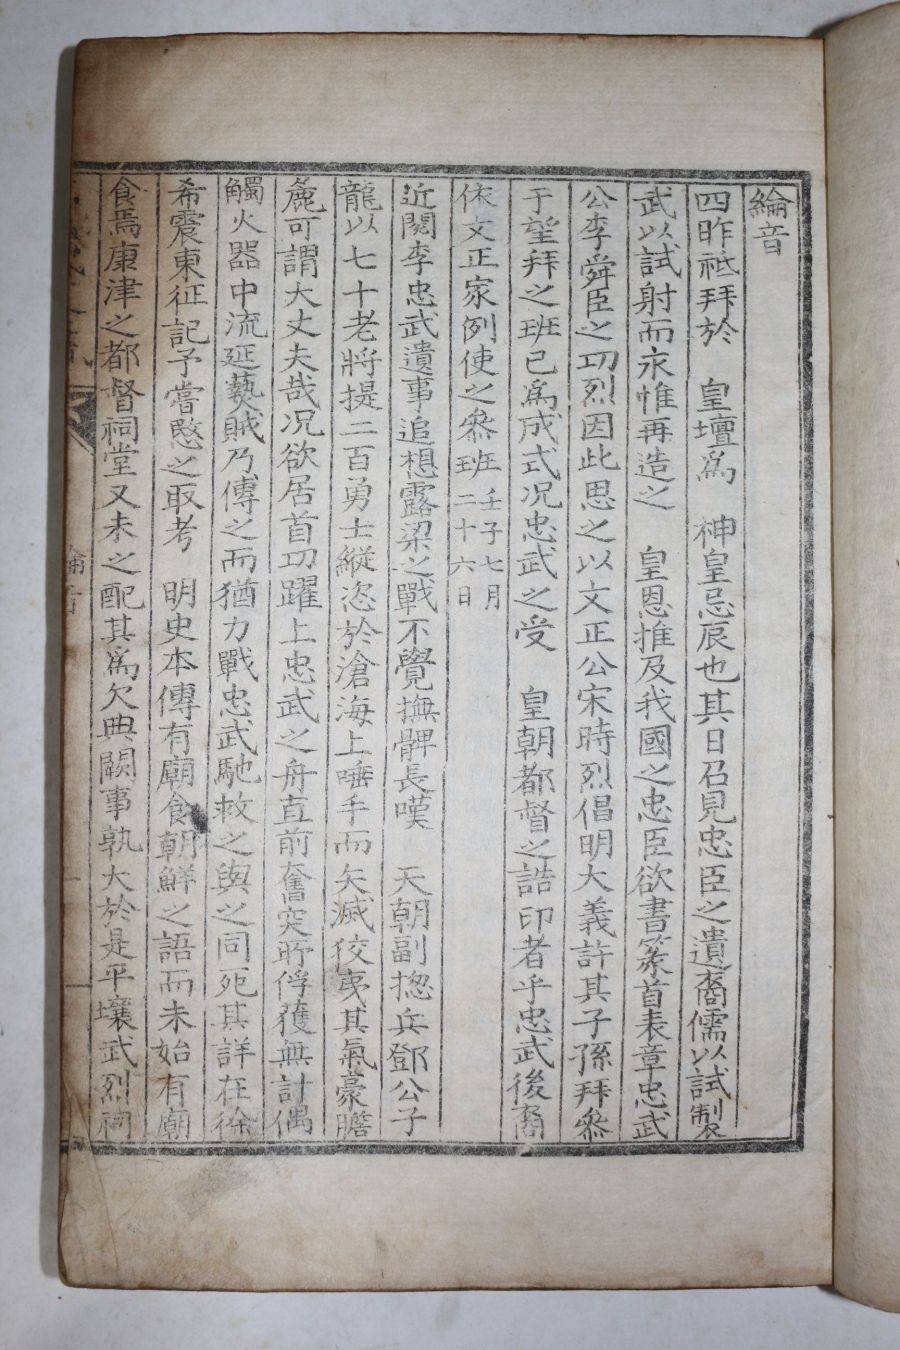 綸音
四昨祗拜於 皇壇爲 神皇忌辰也其日召見忠臣之遺裔儒以試製
武以試射而永惟再造之 皇恩推及我國之忠臣欲書篆首表章忠武
公李舜臣之㓛烈因此思之以文正公宋時烈倡明大義許其子孫拜參
于望拜之班已爲成式况忠武之受 皇朝都督之誥印者乎忠武後裔
依文正家例使之參班 壬子七月二十六日
近閱李忠武遺事追想露梁之戰不覺撫髀長嘆 天朝副摠兵鄧公子
龍以七十老將提二百勇士縱恣於滄海上唾手而矢滅狡夷其氣豪膽
麁可謂大丈夫哉况欲居首㓛躍上忠武之舟直前奮突所俘獲無計偶
觸火器中流延爇賊乃傅之而猶力戰忠武馳救之與之同死其詳在徐
希震東征記予嘗慜之取考 明史本傳有廟食朝鮮之語而未始有廟
食焉康津之都督祠堂又未之配其爲欠典闕事孰大於是平壤武烈祠
綸音